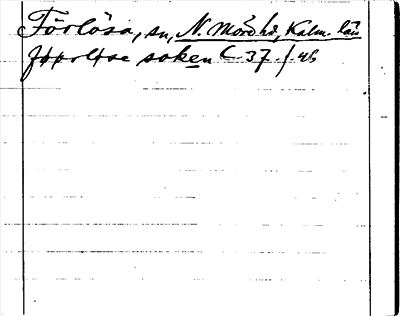 Förlösa, sn, N. Möre hd, Kalm. län
soken C 37 / 46